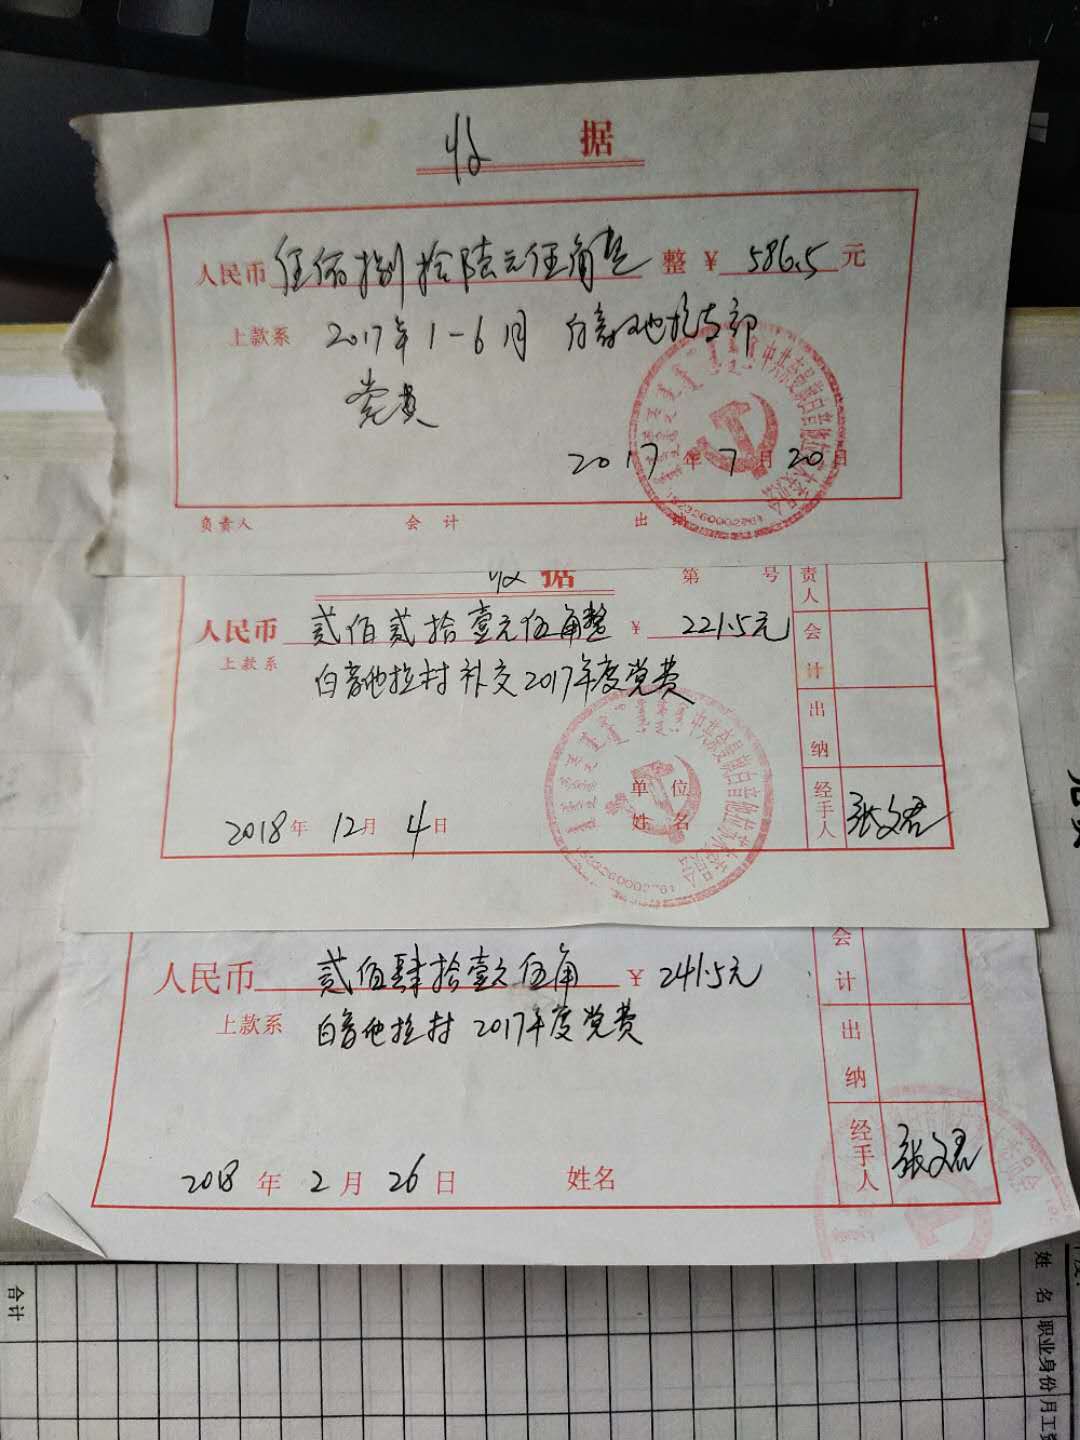 收 据
人民币 伍佰捌拾陆元伍角整 整 ¥ 586.5 元
上款系 2017年1-6月 白音他拉支部
党费
2017 年 7 月 20 日
负责人 会计 出
收 据 第 号
人民币 贰佰贰拾壹元伍角整 ¥ 221.5元
上款系
白音他拉村补交2017年度党费
单位
2018年 12月 4日 姓名
责人
会计
出纳
经手人 张文君
人民币 贰佰肆拾壹元伍角 ¥ 241.5元
上款系 白音他拉村 2017年度党费
2018 年 2 月 26 日 姓名
会计
出纳
经手人 张文君
合计
姓名
职业身份
月工资